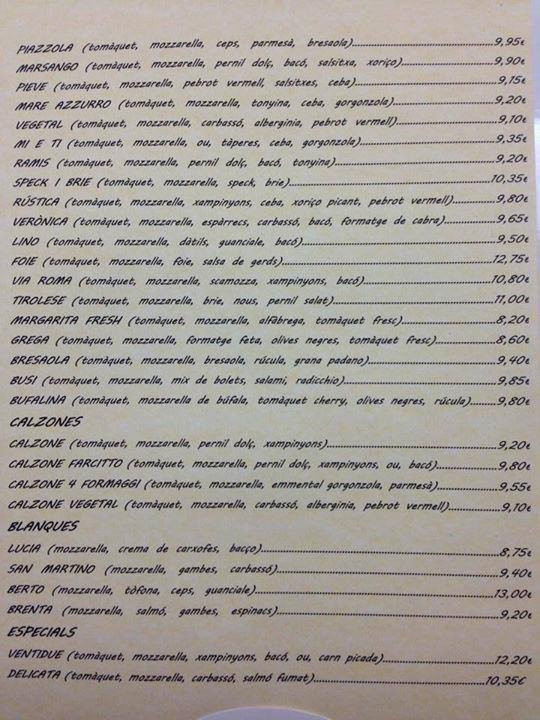 PIAZZOLA (tomàquet, mozzarella, ceps, parmesà, bresaola)............9,95€
MARSANGO (tomàquet, mozzarella, pernil dolç, bacó, salsitxa, xoriço)............9,90€
PIEVE (tomàquet, mozzarella, pebrot vermell, salsitxes, ceba)............9,15€
MARE AZZURRO (tomàquet, mozzarella, tonyina, ceba, gorgonzola)............9,20€
VEGETAL (tomàquet, mozzarella, carbassó, alberginia, pebrot vermell)............9,10€
MI E TI (tomàquet, mozzarella, ou, tàperes, ceba, gorgonzola)............9,35€
RAMIS (tomàquet, mozzarella, pernil dolç, bacó, tonyina)............9,20€
SPECK I BRIE (tomàquet, mozzarella, speck, brie)............10,35€
RÚSTICA (tomàquet, mozzarella, xampinyons, ceba, xoriço picant, pebrot vermell)............9,80€
VERÒNICA (tomàquet, mozzarella, espàrrecs, carbassó, bacó, formatge de cabra)............9,65€
LINO (tomàquet, mozzarella, dàtils, guanciale, bacó)............9,50€
FOIE (tomàquet, mozzarella, foie, salsa de gerds)............12,75€
VIA ROMA (tomàquet, mozzarella, scamozza, xampinyons, bacó)............10,80€
TIROLESE (tomàquet, mozzarella, brie, nous, pernil salat)............11,00€
MARGARITA FRESH (tomàquet, mozzarella, alfàbrega, tomàquet fresc)............8,20€
GREGA (tomàquet, mozzarella, formatge feta, olives negres, tomàquet fresc)............8,60€
BRESAOLA (tomàquet, mozzarella, bresaola, rúcula, grana padano)............9,40€
BUSI (tomàquet, mozzarella, mix de bolets, salami, radicchio)............9,85€
BUFALINA (tomàquet, mozzarella de búfala, tomàquet cherry, olives negres, rúcula)............9,80€
CALZONES
CALZONE (tomàquet, mozzarella, pernil dolç, xampinyons)............9,20€
CALZONE FARCITTO (tomàquet, mozzarella, pernil dolç, xampinyons, ou, bacó)............9,80€
CALZONE 4 FORMAGGI (tomàquet, mozzarella, emmental gorgonzola, parmesà)............9,55€
CALZONE VEGETAL (tomàquet, mozzarella, carbassó, alberginia, pebrot vermell)............9,10€
BLANQUES
LUCIA (mozzarella, crema de carxofes, bacço)............8,75€
SAN MARTINO (mozzarella, gambes, carbassó)............9,40€
BERTO (mozzarella, tòfona, ceps, guanciale)............13,00€
BRENTA (mozzarella, salmó, gambes, espinacs)............9,20€
ESPECIALS
VENTIDUE (tomàquet, mozzarella, xampinyons, bacó, ou, carn picada)............12,20€
DELICATA (tomàquet, mozzarella, carbassó, salmó fumat)............10,35€